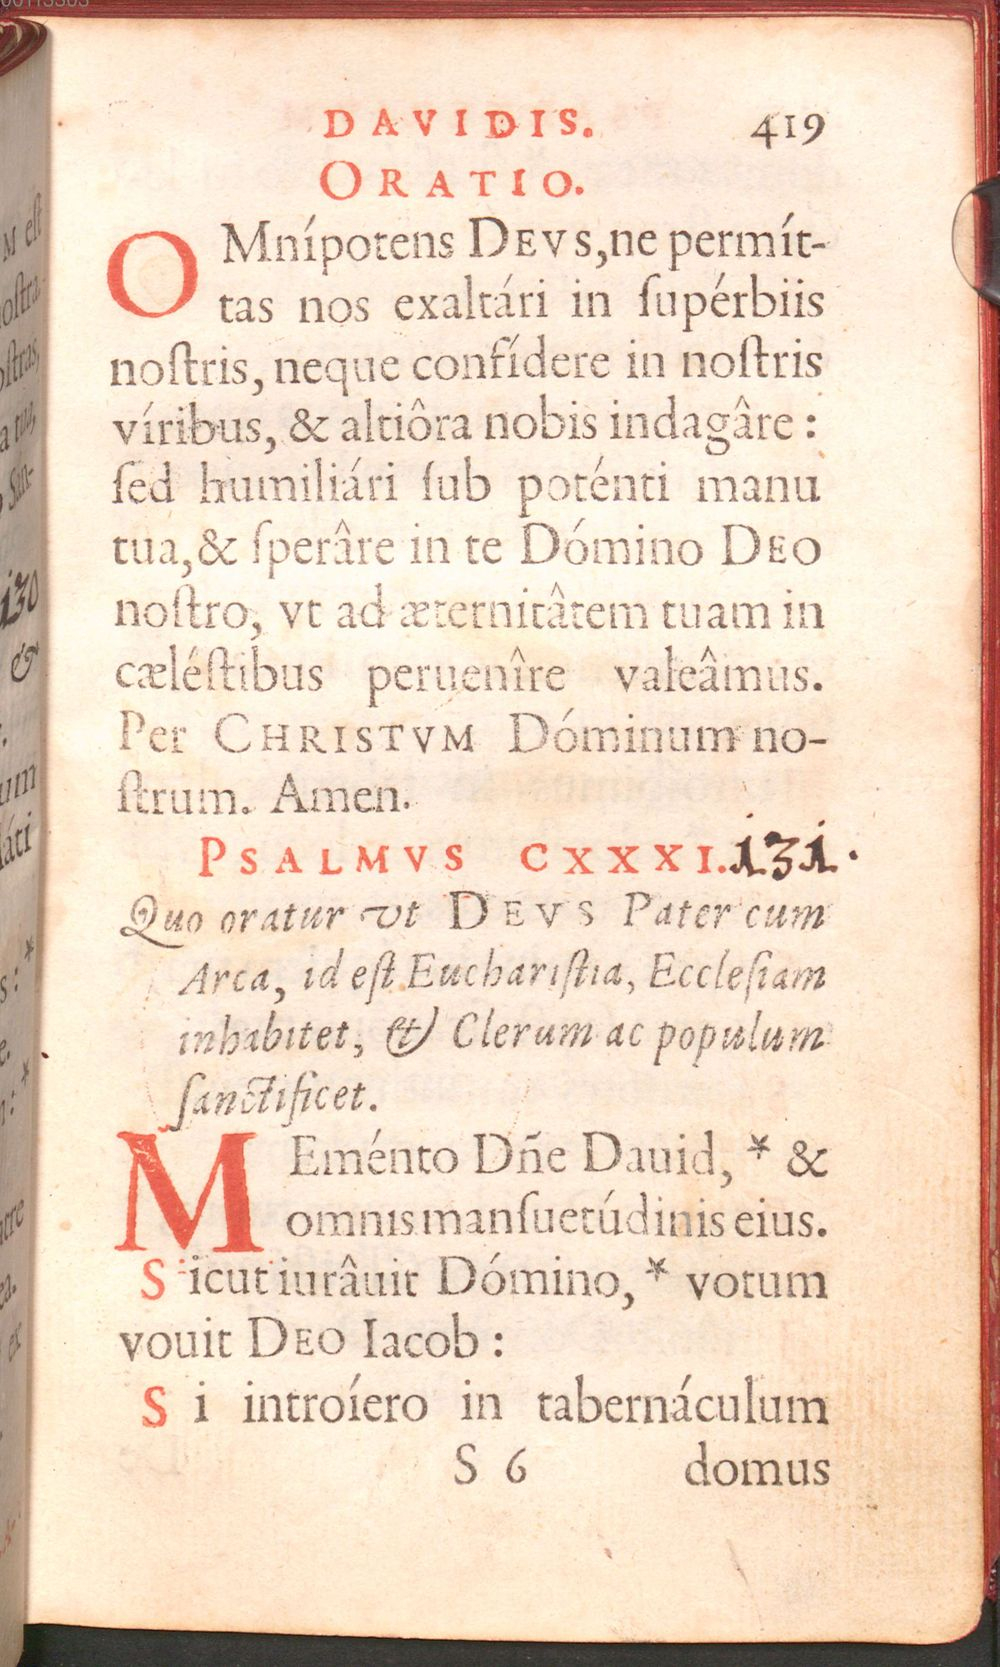 DAVIDIS. 419
ORATIO.
OMnípotens DEVS, ne permít-
tas nos exaltári in ſupérbiis
noſtris, neque confídere in noſtris
víribus, & altiôra nobis indagâre :
ſed humiliári ſub poténti manu
tua, & ſperâre in te Dómino DEO
noſtro, vt ad æternitâtem tuam in
cæléſtibus peruenîre valeâmus.
Per CHRISTVM Dóminum no-
ſtrum. Amen.
PSALMVS CXXXI. 131.
Quo oratur vt DEVS Pater cum
Arca, id eſt Euchariſtia, Eccleſiam
inhabitet, & Clerum ac populum
ſanctificet.
MEménto Dñe Dauid, * & 
omnis manſuetúdinis eius.
Sicut iurâuit Dómino, * votum
vouit DEO Iacob :
Si introíero in tabernáculum
S 6 domus